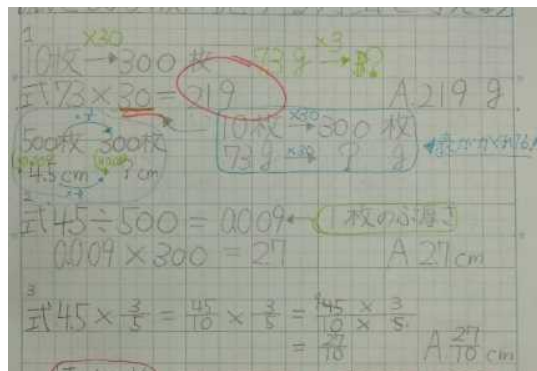 1
×30 ×3
10枚→300枚 73g→?
式73×30=219 A.219 g
500枚 300枚
4.5cm ? cm
10枚 ×30→ 300 枚
73g ×30→ ? g
2
式4.5÷500=0.009←1枚のぶ厚さ
0.009×300=2.7 A 2.7cm
3
式4.5×3/5=45/10×3/5=45/10×3/5
=27/10 A 27/10 cm